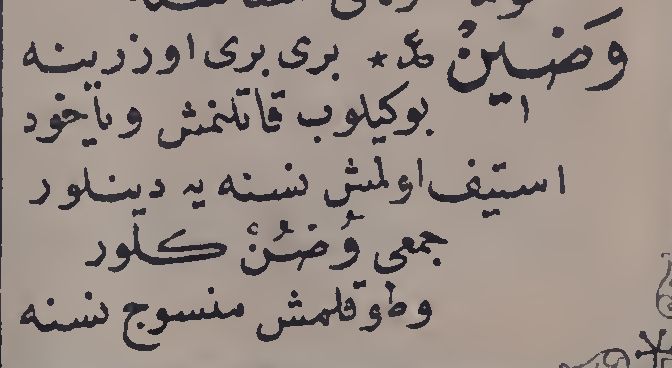 وَضِينٌ ع ٭ بری بری اوزرینه
بوکیلوب قاتلنمش ویاخود
استیف اولمش نسنه یه دینلور
جمعی وُضُنْ کلور
وطوقلمش منسوج نسنه